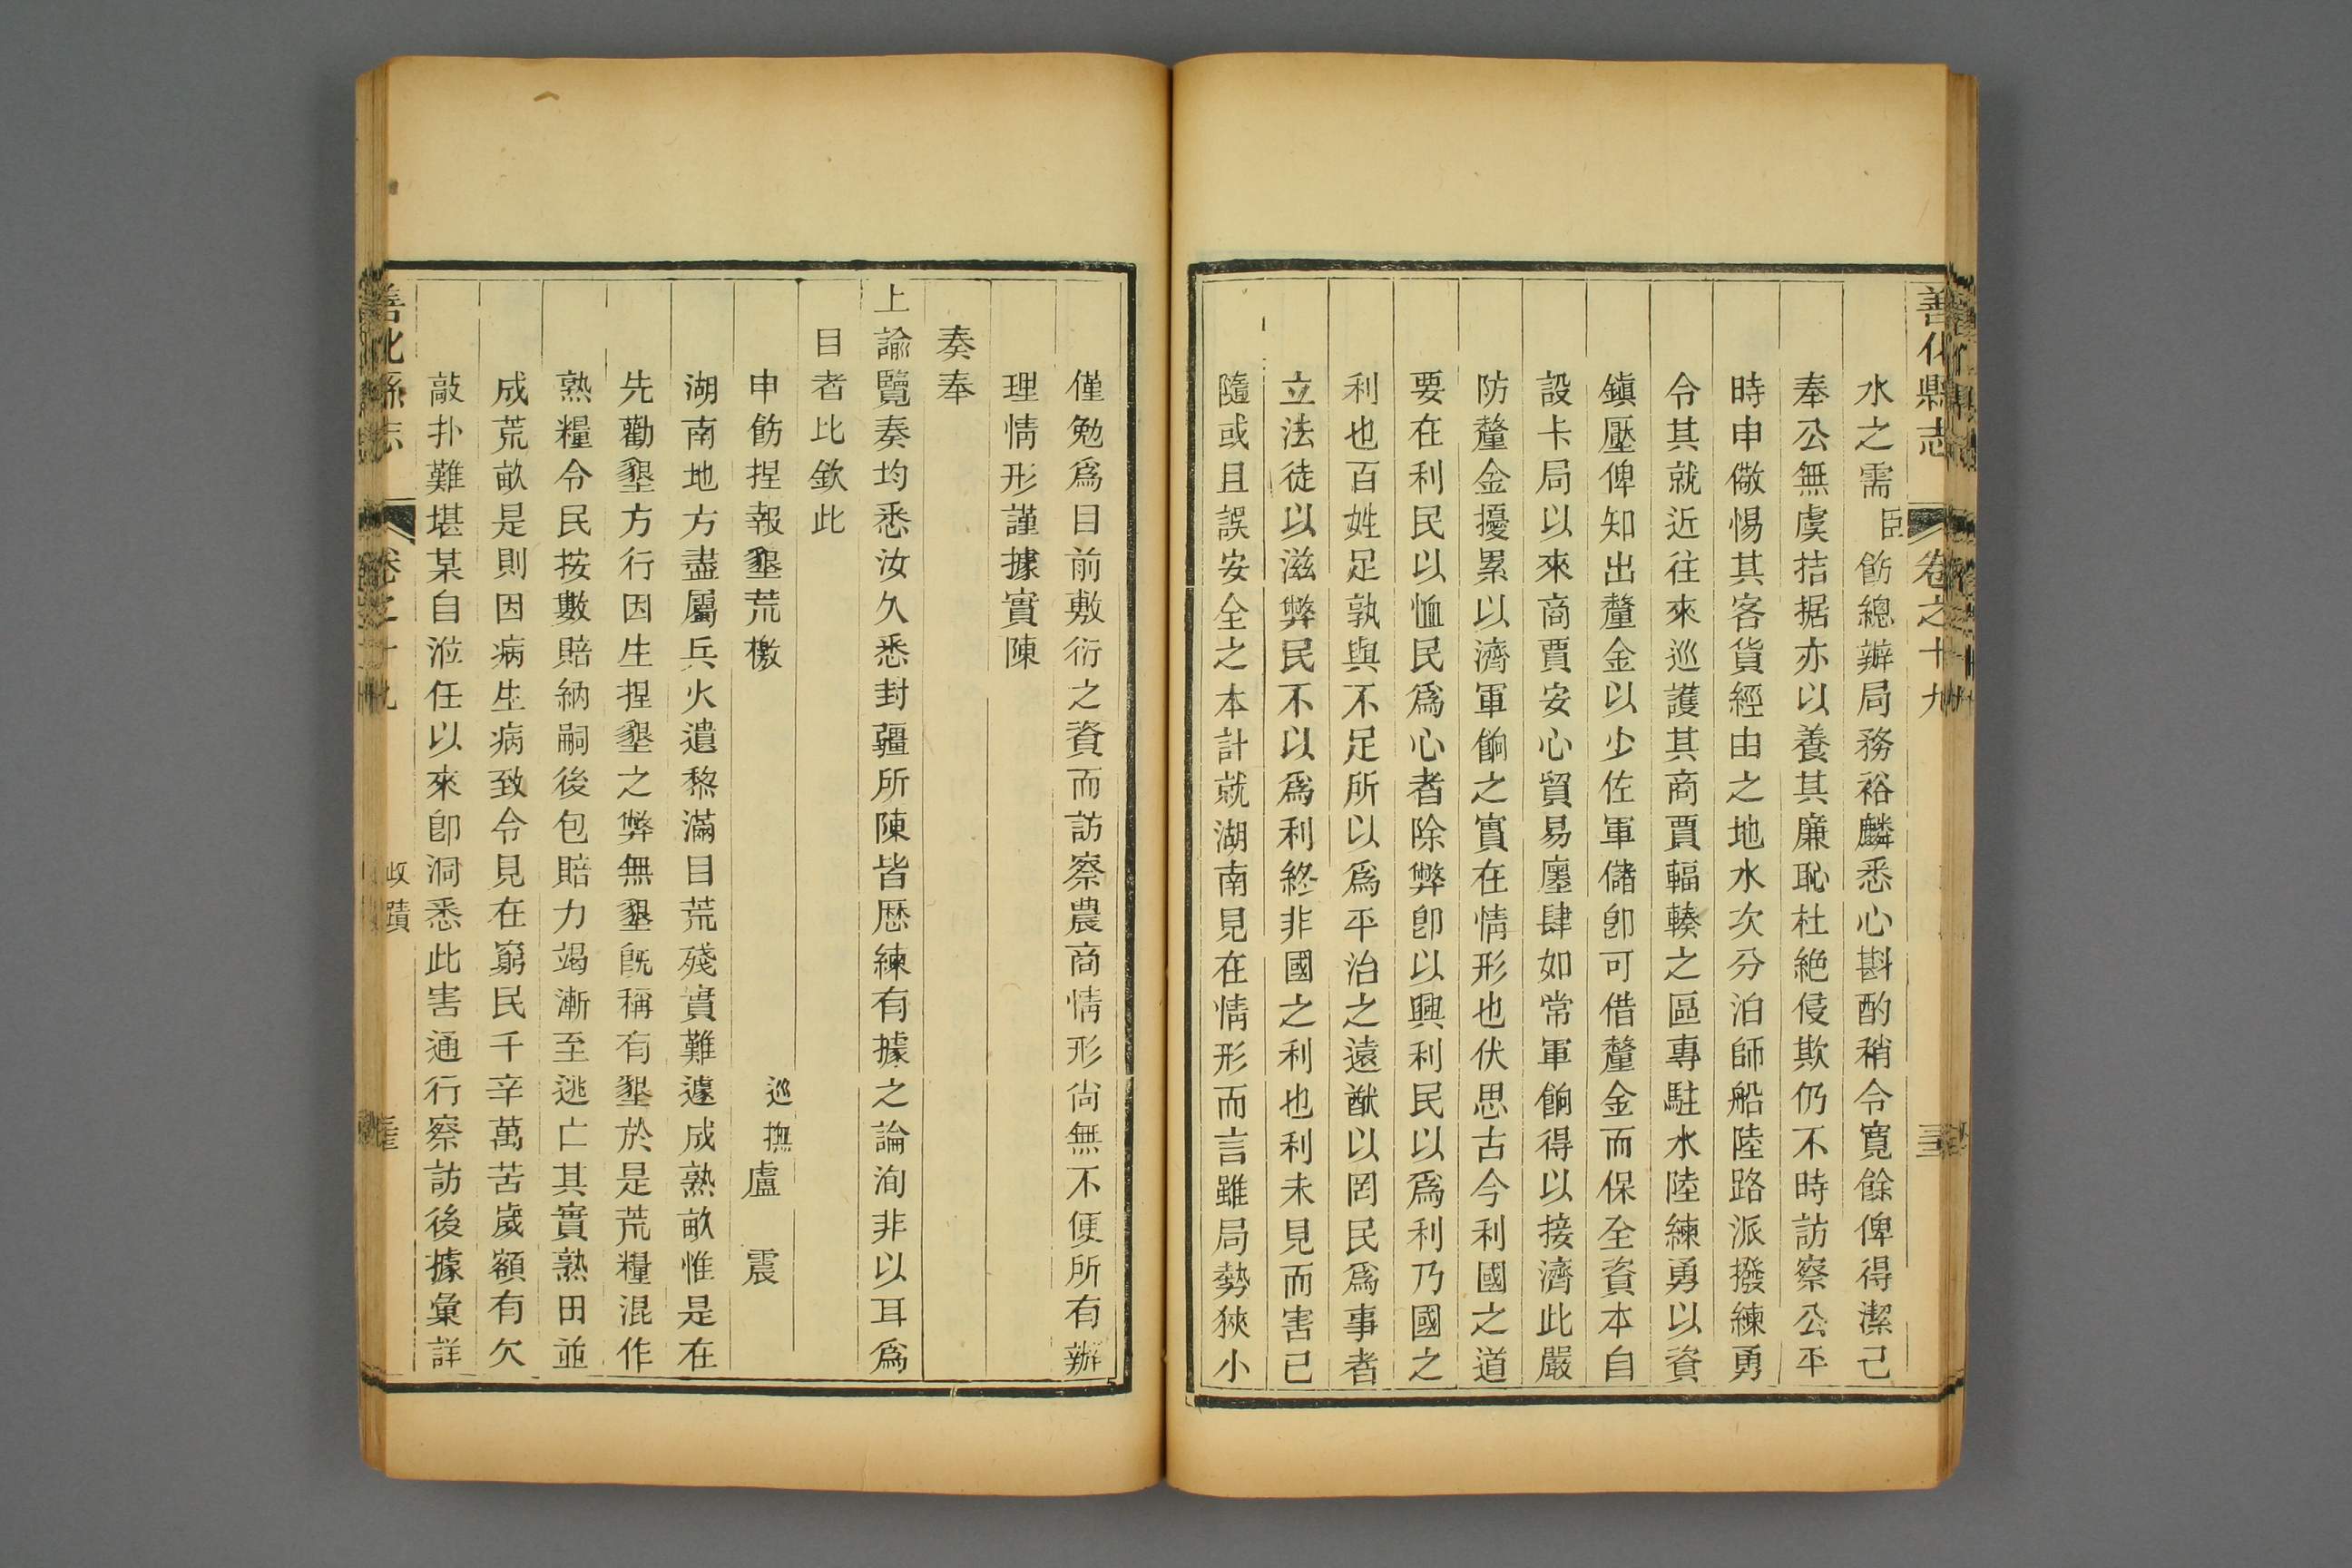 善化縣志 卷之十九
水之需臣飭總辦局務裕麟悉心斟酌稍令寬餘俾得潔己
奉公無虞拮据亦以養其廉恥杜絶侵欺仍不時訪察公平
時申儆惕其客貨經由之地水次分泊師船陸路派撥練勇
令其就近往來巡護其商賈輻輳之區專駐水陸練勇以資
鎭壓俾知出釐金以少佐軍儲卽可借釐金而保全資本自
設卡局以來商賈安心貿易廛肆如常軍餉得以接濟此嚴
防釐金擾累以濟軍餉之實在情形也伏思古今利國之道
要在利民以恤民爲心者除弊卽以興利民以爲利乃國之
利也百姓足孰與不足所以爲平治之遠猷以罔民爲事者
立法徒以滋弊民不以爲利終非國之利也利未見而害已
隨或且誤安全之本計就湖南見在情形而言雖局勢狹小
僅勉爲目前敷衍之資而訪察農商情形尙無不便所有辦
理情形謹據實陳
奏奉
上諭覽奏均悉汝久悉封疆所陳皆歷練有據之論洵非以耳爲
目者比欽此
申飭捏報墾荒檄 巡撫盧震
湖南地方盡屬兵火遺黎滿目荒殘實難遽成熟畝惟是在
先勸墾方行因生捏墾之弊無墾旣稱有墾於是荒糧混作
熟糧令民按數賠納嗣後包賠力竭漸至逃亡其實熟田並
成荒畝是則因病生病致令見在窮民千辛萬苦歲額有欠
敲扑難堪某自涖任以來卽洞悉此害通行察訪後據彙詳
善化縣志 卷之十九 政蹟